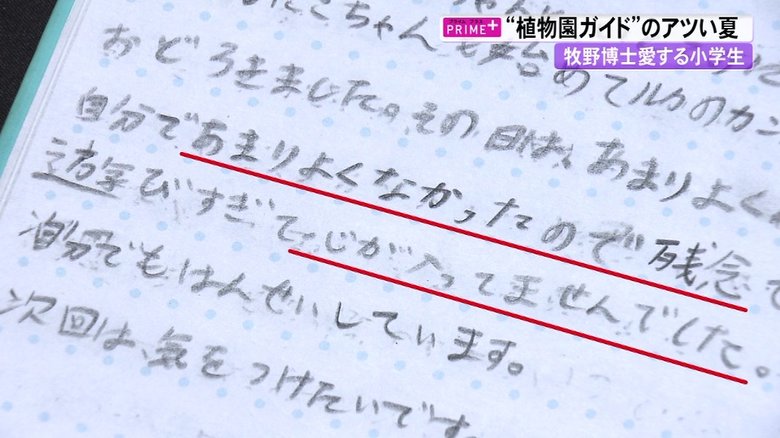 プライム プラス
PRIME+
“植物園ガイド”のアツい夏
牧野博士愛する小学生
ちゃんも始めてルカのカン
おどろきました。その日は、あまりよく
自分であまりよくなかったので残念で
遊びすぎて心が入ってませんでした。
自分でもはんせいしています。
次回は、気をつけたいです